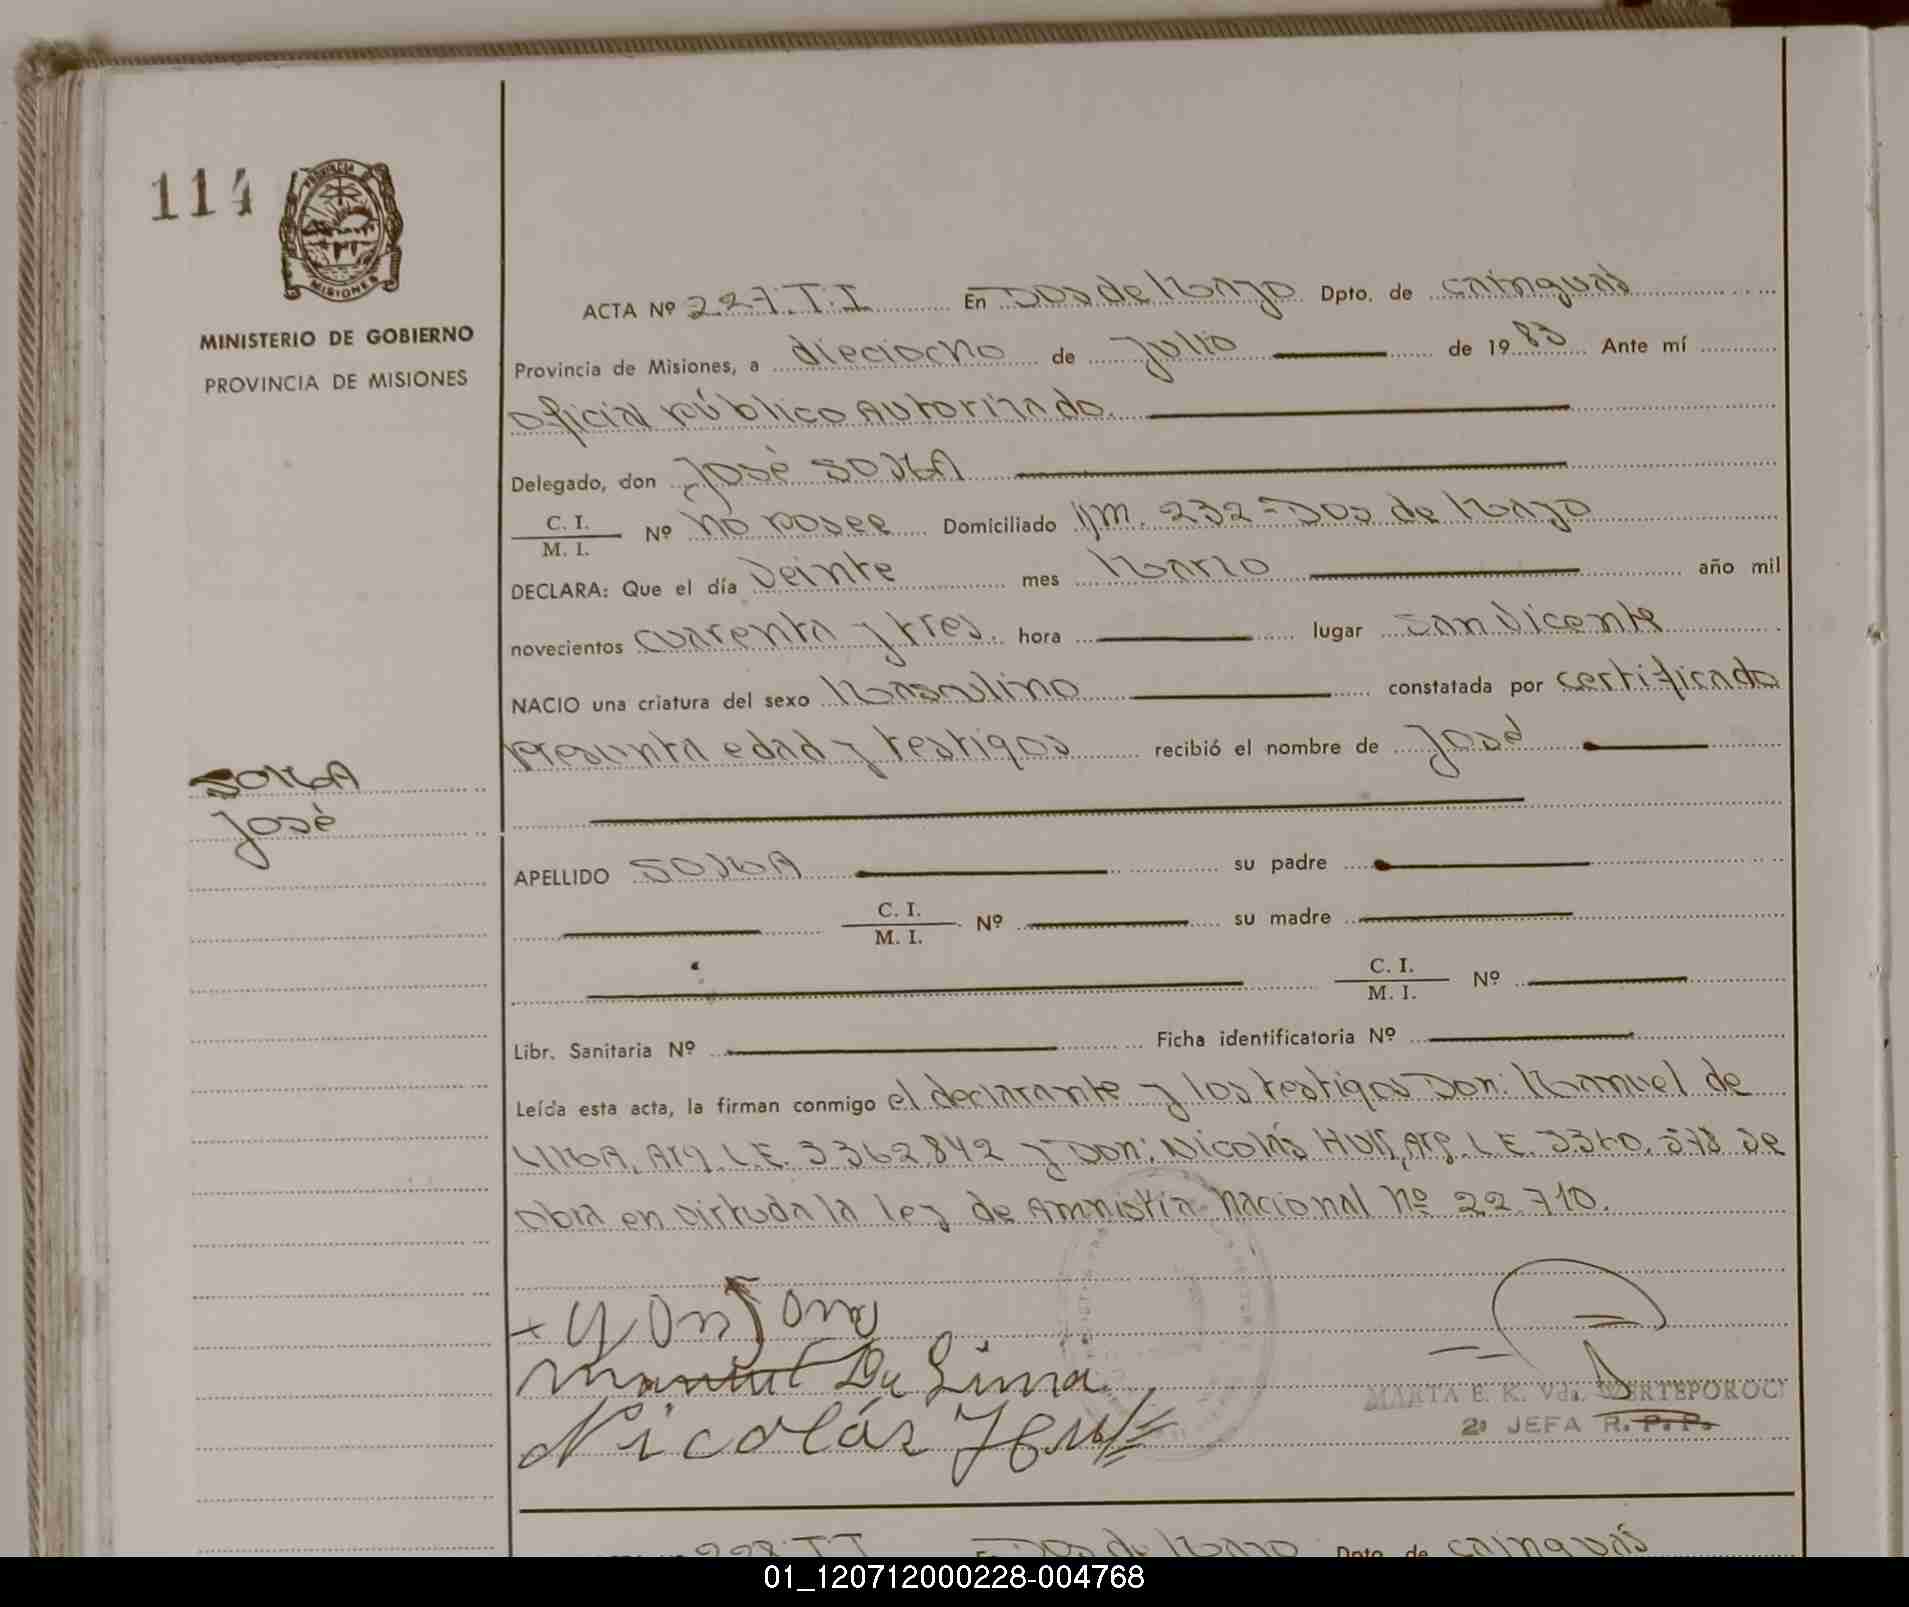 114
PROVINCIA DE
MISIONES
MINISTERIO DE GOBIERNO
PROVINCIA DE MISIONES
ACTA Nº 227. T. I En Dos de Mayo Dpto. de Cainguás
Provincia de Misiones, a dieciocho de Julio de 19 83 Ante mí
Oficial Público Autorizado.
Delegado, don José
C. I.
M. I. Nº No posee Domiciliado Km. 232 = Dos de Mayo
DECLARA: Que el día Veinte mes Marzo año mil
novecientos cuarenta y tres. hora lugar San Vicente
NACIO una criatura del sexo Masculino constatada por certificado
presunta edad y testigos recibió el nombre de José
José
APELLIDO su padre
C. I.
M. I. Nº su madre
C. I.
M. I. Nº
Libr. Sanitaria Nº Ficha identificatoria Nº
Leída esta acta, la firman conmigo el declarante y los testigos Don: Manuel de
LIMA, Arg. L.E. 3362842 y Don: Nicolás Arg. L.E. se
labra en virtud a la ley de Amnistía Nacional Nº 22.710.
Manuel De Lima
Nicolás
MARTA E. K. Vda.
2ª JEFA R. P. P.
228 I I En Dos de Mayo Dpto. de Cainguás
01_120712000228-004768